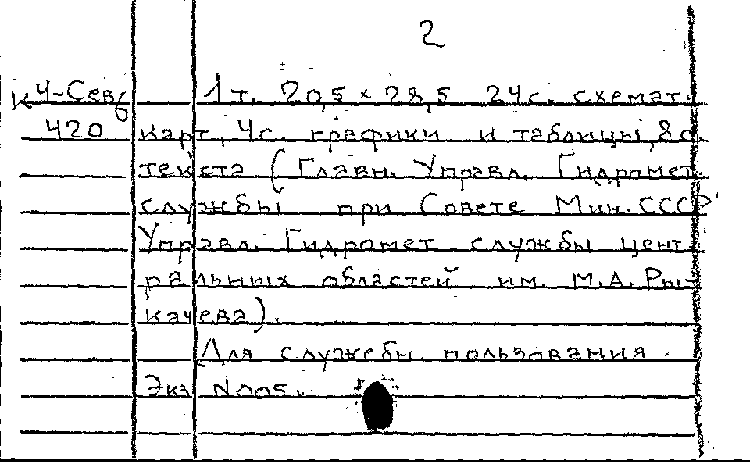 2
К4-Сев 1 т. 20,5 × 28,5 24 с. схемат.
6
420 карт, 4 с. графики и таблицы, 8 с.
текста (Главн. Управл. Гидромет.
службы при Совете Мин. СССР
Управл. Гидромет. службы цент-
ральных областей им. М.А. Ры-
качева).
Для служебн. пользования
Экз N005.